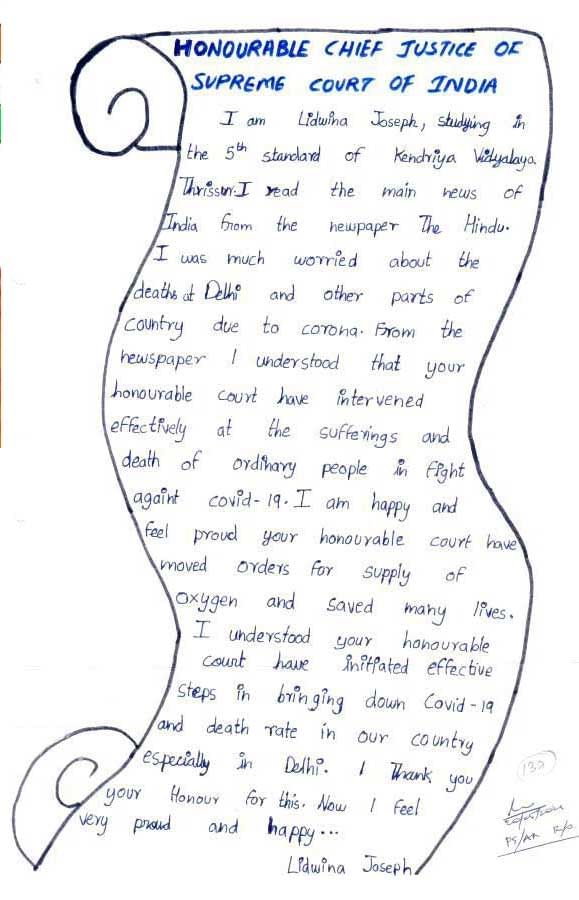 HONOURABLE CHIEF JUSTICE OF
SUPREME COURT OF INDIA
I am Lidwina Joseph, studying in
the 5th standard of Kendriya Vidyalaya
Thrissur. I read the main news of
India from the newpaper The Hindu.
I was much worried about the
deaths at Delhi and other parts of
country due to corona. From the
newspaper I understood that your
honourable court have intervened
effectively at the sufferings and
death of ordinary people in fight
againt covid-19. I am happy and
feel proud your honourable court have
moved orders for supply of
oxygen and saved many lives.
I understood your honourable
court have initiated effective
steps in bringing down Covid-19
and death rate in our country
especially in Delhi. I Thank you
your Honour for this. Now I feel
very proud and happy...
Lidwina Joseph
130
PS/AR